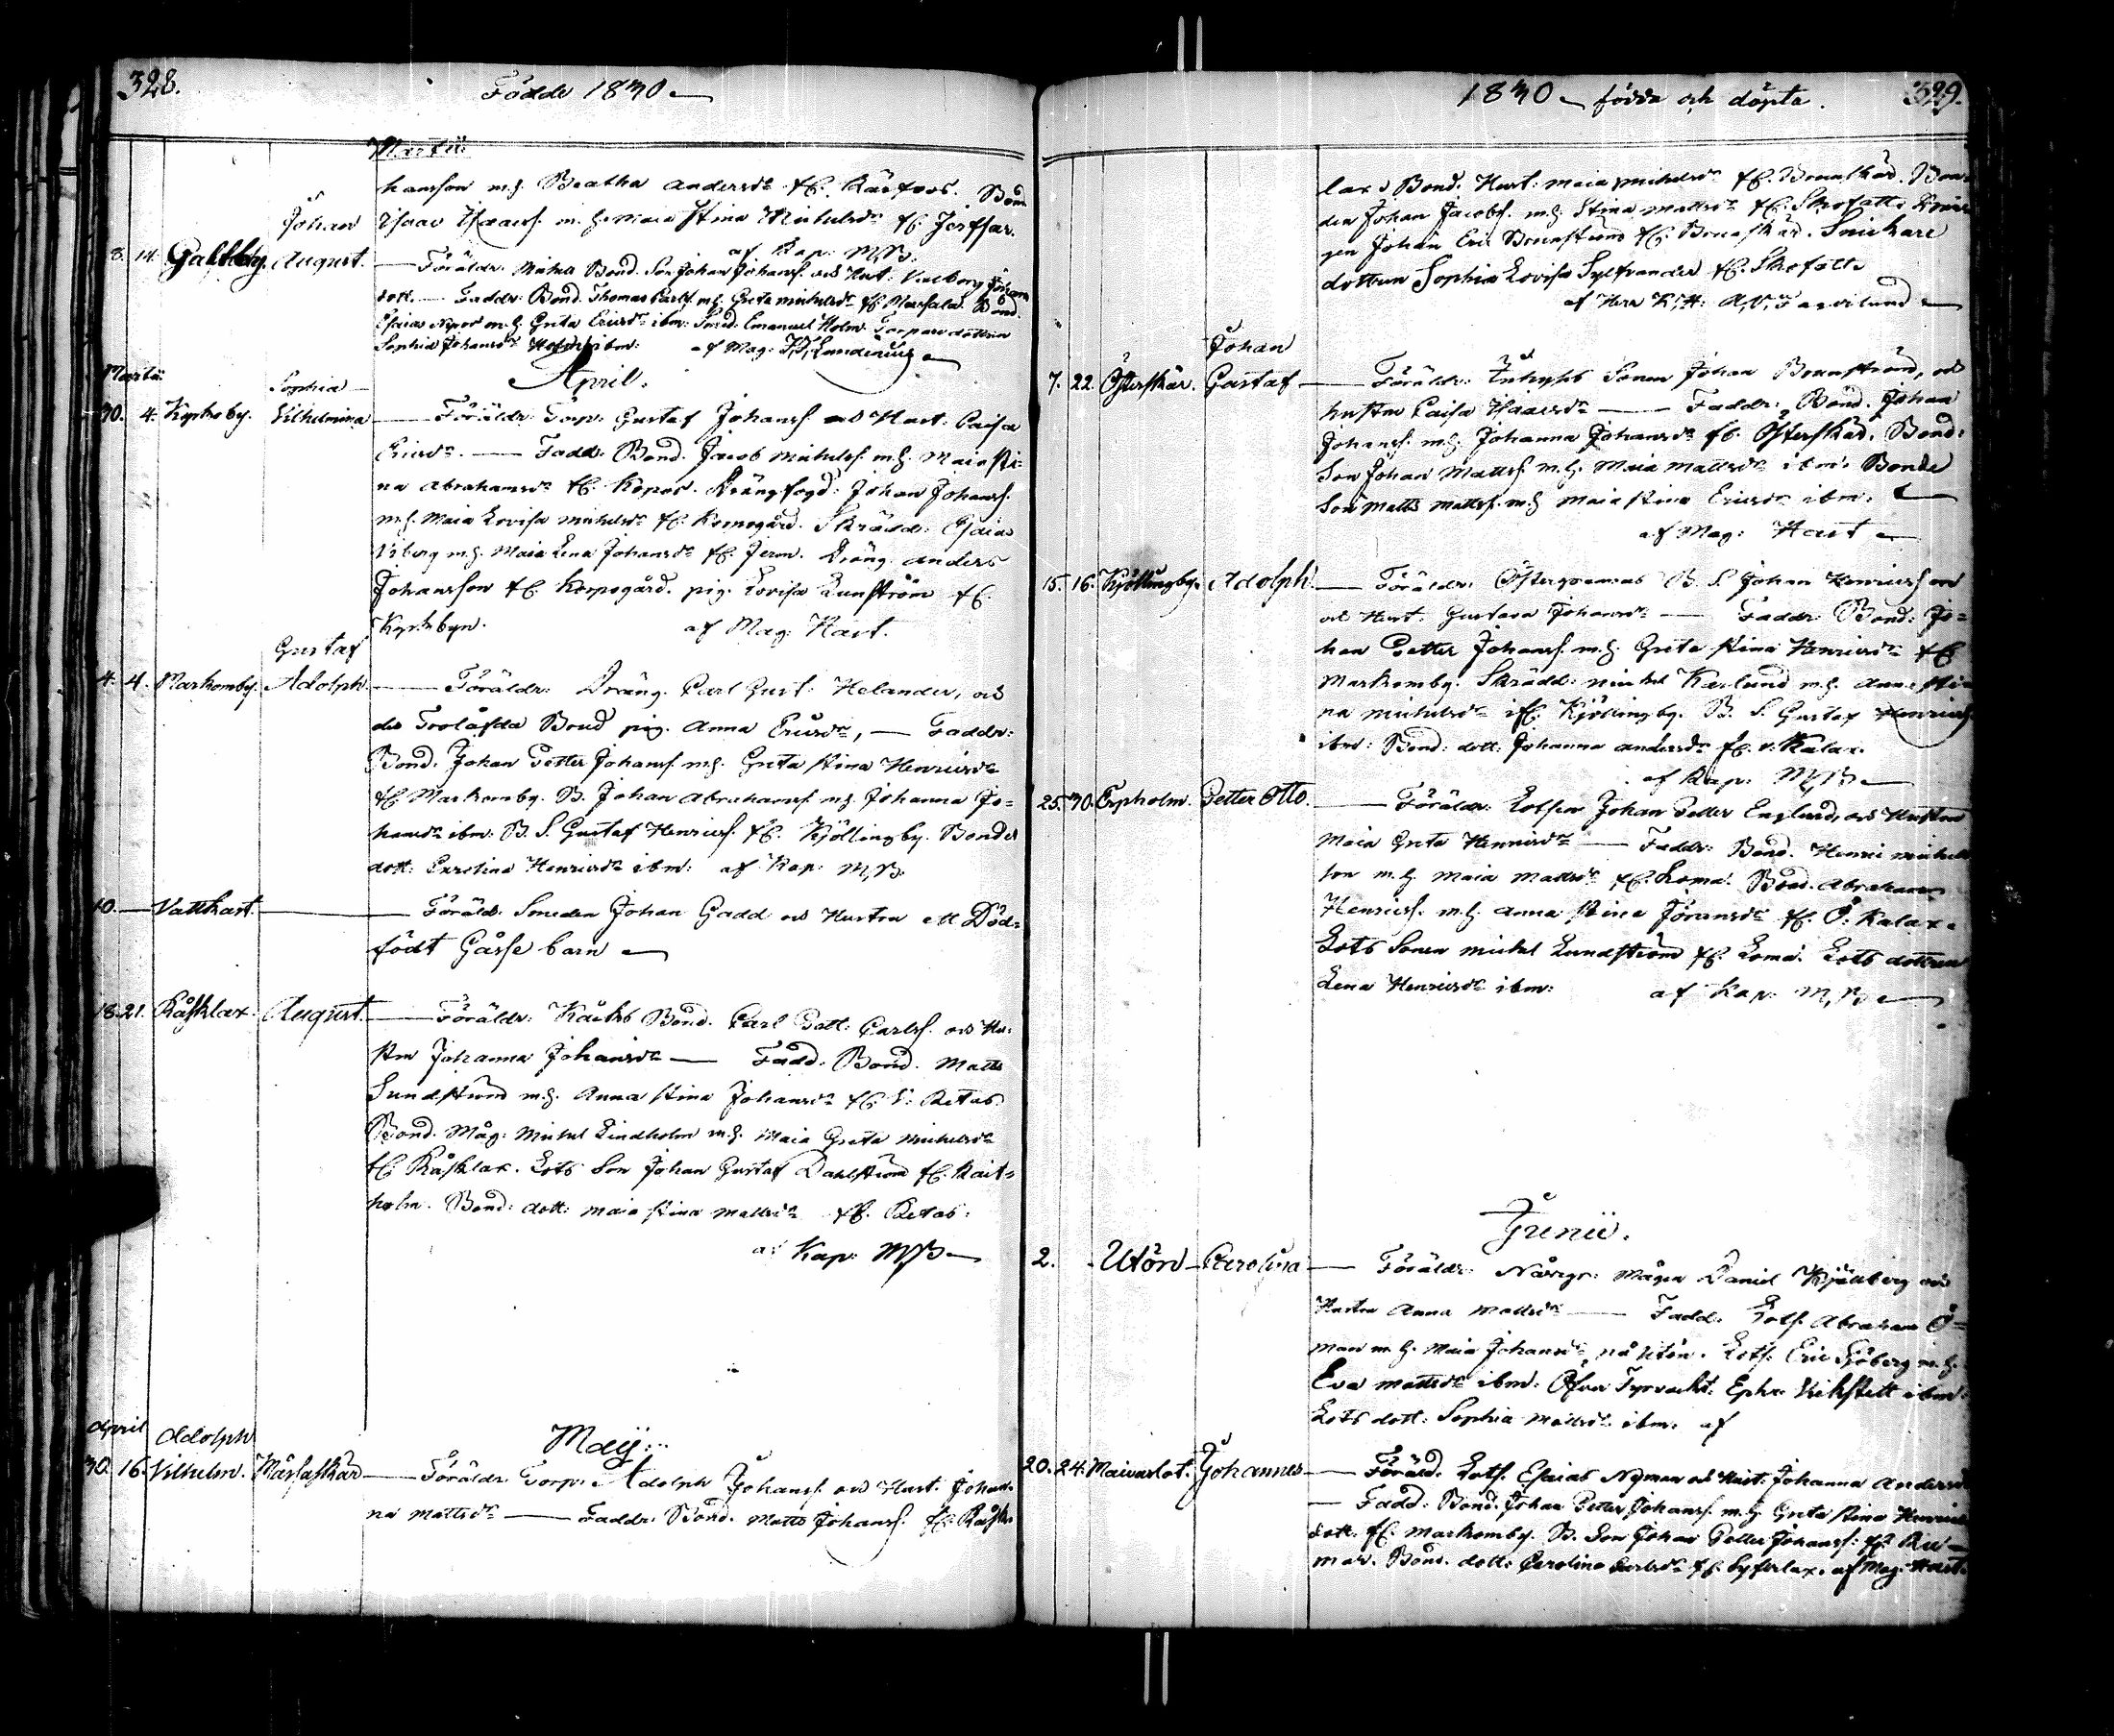 328.
Födde 1830
Martii
hansson m.h. Beatha Andersdr fr. Kärfvos. Bond
Isaac Isaacs. m.h. Maia Stina Michelsdr fr.
af Kap: M,B.
Johan
8. 14. Galtby. August. Föräldr: Bond. Son Johan Johanss. och Hust: Valborg Johans
dott. Faddr: Bond. Thomas Carls. m.h. Greta Michelsdr fr. Bond.
Esaias m.h. Greta Ericsdr ibm: Smed. Emanuel Holm. Torpare dottren
Sophia Johansdr ibm: af Mag:
April.
Martii
Sophia
30. 4. Kyrkoby. Vilhelmina Föräldr: Torp: Gustaf Johanss. och Hust. Caisa
Ericsdr. Faddr: Bond. Jacob Michelss. m.h. Maia Sti-
na Abrahamsdr fr. Korpo. Drängfogd: Johan Johanss.
m.h. Maia Lovisa Michelsdr fr. Korpogård. Skrädd: Esaias
m.h. Maia Lena Johansdr fr. Jerm. Dräng Anders
Johansson fr. Korpogård. pig. Lovisa Lunström fr.
Kyrkbyn. af Mag: Hast.
Gustaf
4. 4. Markomby. Adolph. Föräldr: Dräng. Carl Gust: Helander, och
des Troläfda Brud pig. Anna Ericsdr, Faddr:
Bond. Johan Petter Johanss. m.h. Greta Stina Henricsdr
fr. Markomby. B. Johan Abrahamss. m.h. Johanna Jo-
hansdr ibm: B. S. Gustaf Henricss. fr. Kjöllingby. Bondes
dott: Carolina Henricsdr ibm: af Kap: M,B.
10. Vattkast. Föräld: Smeden Johan Gadd och Hustru ett Död-
födt Gåsse barn
18. 21. Råsklax. August. Föräldr: Bond. Carl Gott: Carlss. och Hu-
stru Johanna Johansdr Fadd: Bond. Matts
Sundström m.h. Anna Stina Johansdr fr. Retas.
Bond. Måg: Michel Lindholm m.h. Maia Greta Michelsdr
fr. Råsklax. Lots Son Johan Gustaf Dahlström fr. Kait-
holm. Bond: dott: Maia Stina Mattsdr fr. Retas:
af Kap: M,B
Maij
April
Adolph
30. 16. Vilhelm. Märsaskär Föräldr: Torp: Adolph Johanss. och Hust: Johan-
na Mattsdr Faddr: Bond. Matts Johanss. fr. Råsk-
1830 födda och döpta. 329.
lax Bond. Hust: Maia Michelsdr fr. Brunskär. Bon-
den Johan Jacobs. m.h. Stina Mattsdr fr.
gen Johan Eric Brunström fr. Brunskär. Snickare
dottren Sophia Lovisa Sylfvander fr.
af Herr
Johan
7. 22. Österskär. Gustaf Föräldr: Sonen Johan Brunström, och
hustru Caisa Isaacsdr Faddr: Bond. Johan
Johanss. m.h. Johanna Johansdr fr. Österskär. Bond:
Son Johan Mattss. m.h. Maia Mattsdr ibm: Bonde
Son Matts Mattss. m.h. Maia Stina Ericsdr ibm.
af Mag: Hast
15. 16. Kjöllingby. Adolph. Föräldr: B. S. Johan Henricss. och
och Hust. Gustava Johansdr Faddr: Bond: Jo-
han Petter Johanss. m.h. Greta Stina Henricsdr fr.
Markomby. Skrädd: Michel Karlund m.h. Anna Sti-
na Michelsdr fr. Kjöllingby. B. S. Gustaf Henricss.
ibm: Bond: dott: Johanna Andersdr fr. v: Kalax.
af Kap: M,B
25. 30. Erpholm. Petter Otto. Föräldr: Lotsen Johan Petter Englund, och Hustru
Maia Greta Henricsdr Faddr: Bond. Henric Michels
son m.h. Maia Mattsdr fr. Loma. Bond. Abraham
Henricss. m.h. Anna Stina Göransdr fr. Ö: Kalax.
Lots Sonen Michel Lundström fr. Loma. Lots dottren
Lena Henricsdr ibm: af Kap: M,B
Junii.
2. Utön Carolina Föräldr: Mågen Daniel Kjällberg och
Hustru Anna Mattsdr Fadd: Lots. Abraham Ö-
man m.h. Maia Johansdr på Utön. Lots. Eric Sjöberg m.h.
Eva Mattsdr ibm: Ephr: ibm:
Lots dott: Sophia Mattsdr ibm: af
20. 24. Johannes Föräld. Lots. Esaias Nyman och Hust: Johanna Andersdr
Fadd: Bond. Johan Petter Johanss. m.h. Greta Stina Henrics
dott. fr. Markomby. B. Son Johan Petter Johanss. fr. Ru-
mar. Bond. dott: Carolina Carlsdr fr. af Mag: Hast.